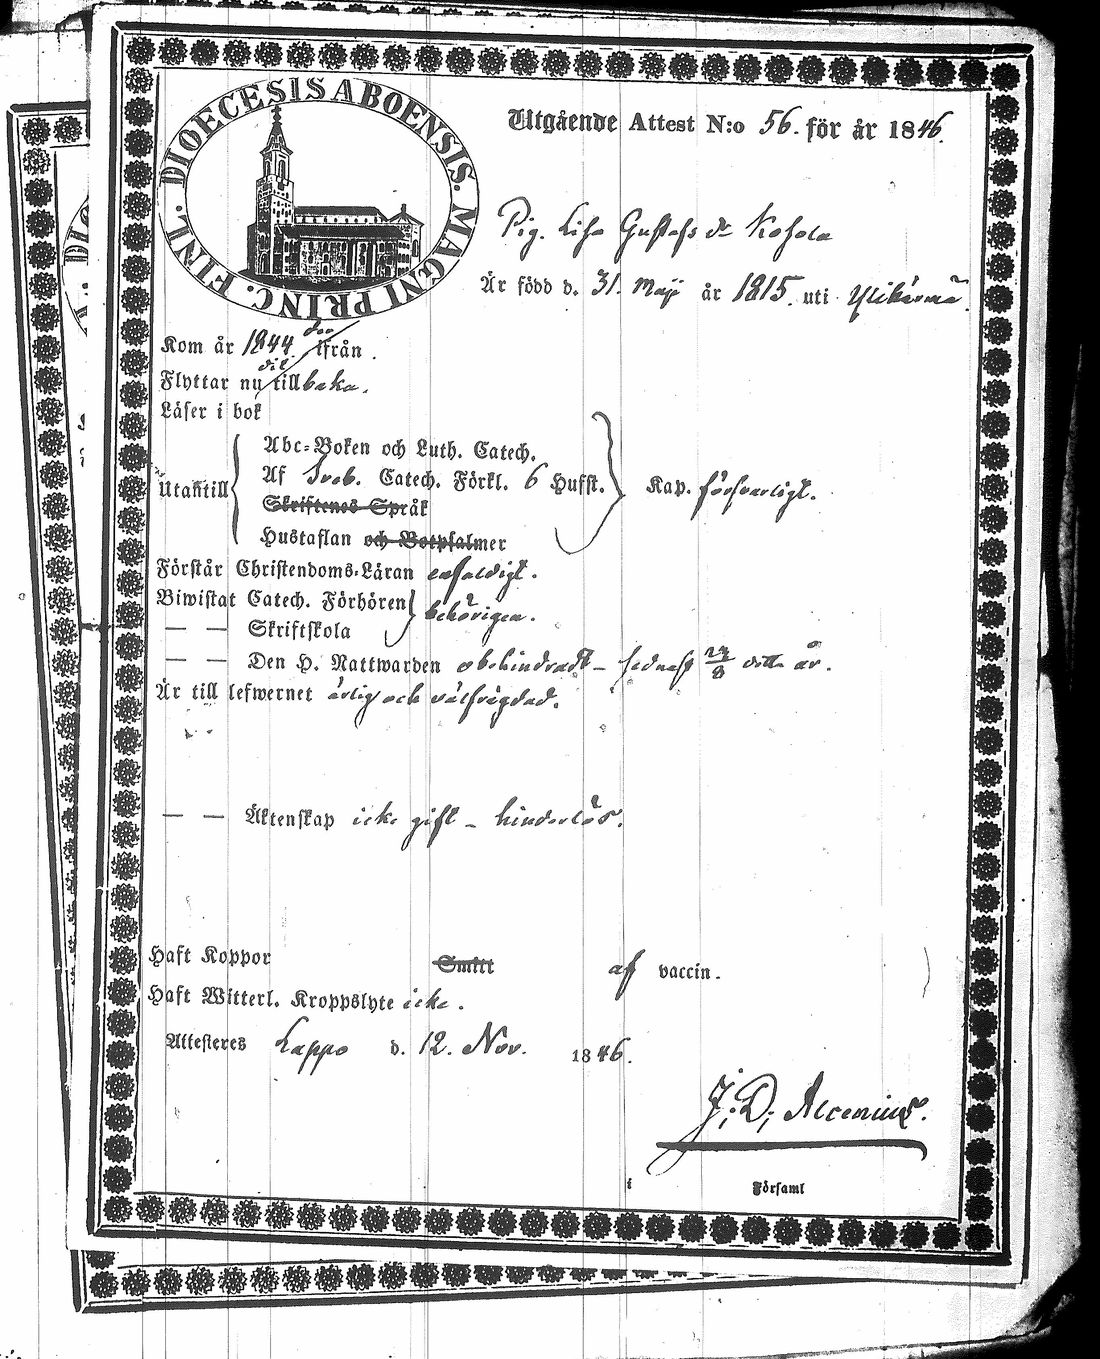 DIOECESIS ABOENSIS. MAGNI PRINC. FINL.
Utgående Attest N:o 56. för år 1846.
Pig. Lisa Gustafs dr Kosola
Är född d. 31. Maji år 1815. uti Ylikärmä
Kom år 1844 der ifrån.
Flyttar nu dit tillbaka.
Läser i bok
Utantill
Abc-Boken och Luth. Catech.
Af Sveb. Catech. Förkl. 6 Hufst.
Skriftenes Språk
Hustaflan och Botpsalmer
Kap. försvarligt.
Förstår Christendoms-Läran enfaldigt.
Biwistat Catech. Förhören
— — Skriftskola
behörigen.
— — Den H. Nattwarden obehindradt – sednast 23/8 detta år.
Är till lefwernet ärlig och välfrägdad.
— — Äktenskap icke gift – hinderlös.
Haft Koppor Smitt af vaccin.
Haft Witterl. Kroppslyte icke.
Attesteres Lappo d. 12. Nov. 1846.
J. D. Alcenius.
i Församl